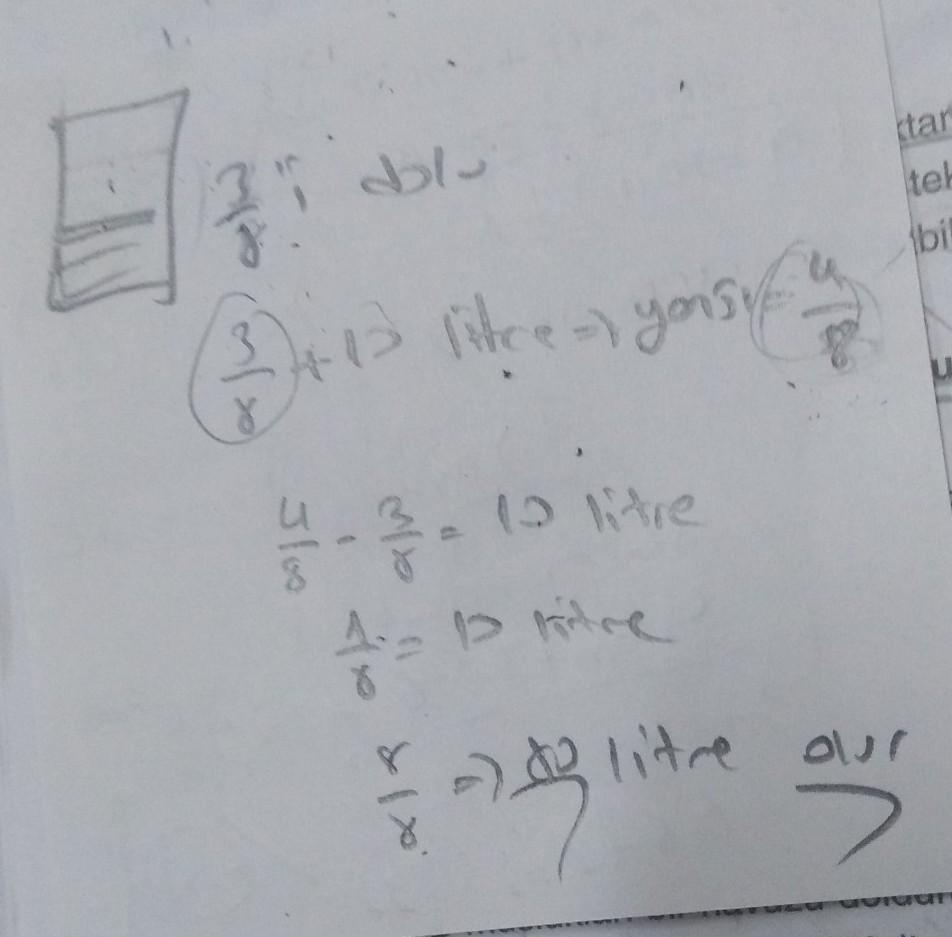 3/8 'i dolu
3/8 + 10 litre => yarısı = 4/8
4/8 - 3/8 = 10 litre
1/8 = 10 litre
8/8 => 80 litre olur
ktar
tek
bil
u